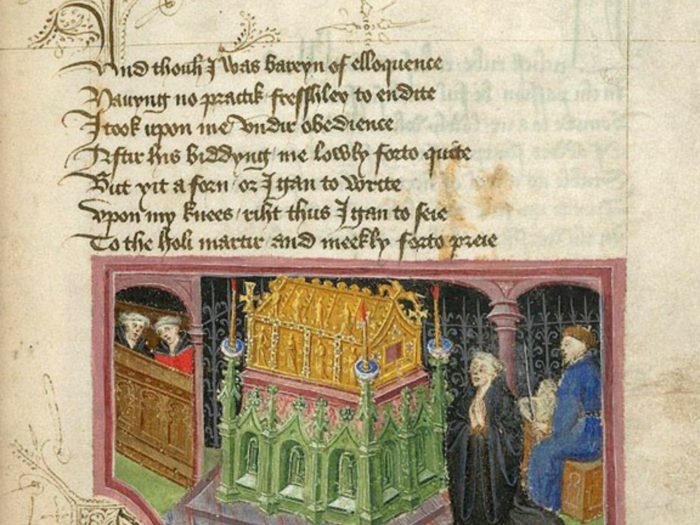 And thouh I was bareyn of elloquence
Hauyng no practik fresshley to endite
I took upon me vndir obedience
Aftir his biddyng me lowly forto quite
But yit a forn or I gan to write
vpon my knees / riht thus I gan to seie
To the holi martir and meekly forto preie